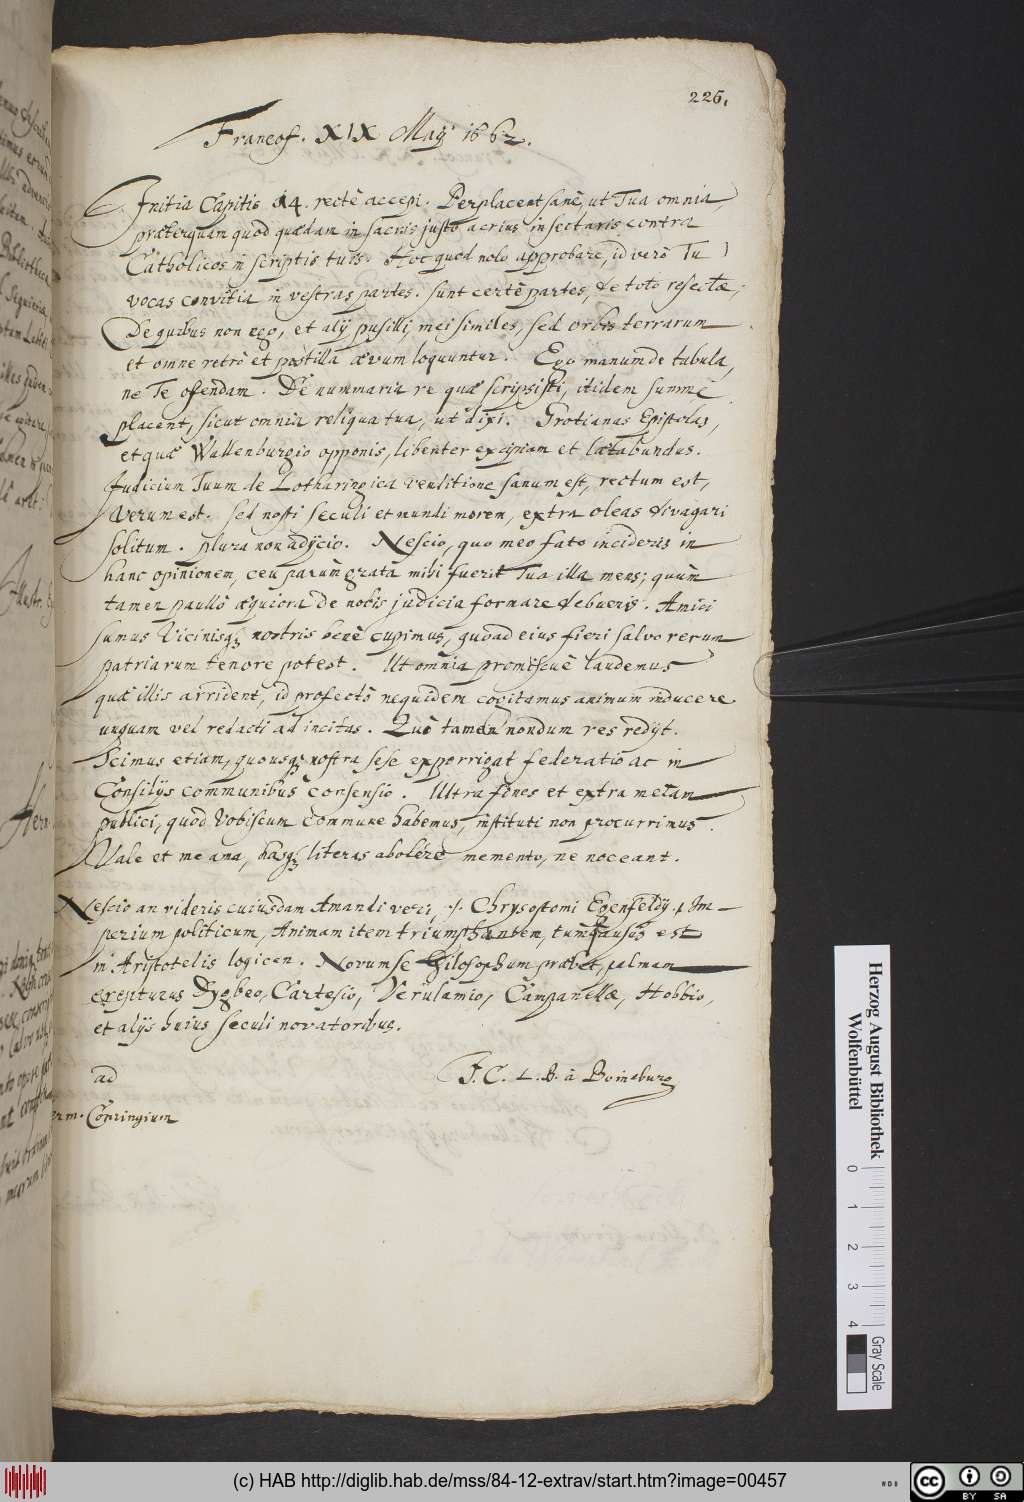 226.
Francof. XIX Maij 1662.
Initia Capitis 14. rectè accepi. Perplacent sanè, ut Tua omnia,
præterquam quod quædam in sacris justo acrius insectaris contra
Catholicos in scriptis tuis. Hoc quod nolo approbare, id verò Tu
vocas convitia in vestras partes. sunt certè partes, de toto resectæ;
De quibus non ego, et alij pusilli, mei similes, sed orbis terrarum
et omne retrò et postilla ævum loquuntur. Ego manum de tabula,
ne Te ofendam. De nummaria re quæ scripsisti, itidem summè
placent, sicut omnia reliqua tua, ut dixi. Grotianas Epistolas,
et quæ Wallenburgio opponis, libenter excipiam et lætabundus.
Judicium Tuum de Lotharingica venditione sanum est, rectum est,
verum est. sed nosti seculi et mundi morem, extra oleas divagari
solitum. plura non adijcio. Nescio, quo meo fato incideris in
hanc opinionem, ceu parum grata mihi fuerit Tua illa mens; quum
tamen paullò æquiora de nobis judicia formare debueris. Amici
sumus Vicinisq; nostris benè cupimus, quoad eius fieri salvo rerum
patriarum tenore potest. Ut omnia promiscuè laudemus
quæ illis arrident, id profectò nequidem cogitamus animum inducere
unquam vel redacti ad incitas. Quò tamen nondum res redijt.
Scimus etiam, quousq; nostra sese exporrigat federatio ac in
Consilijs communibus consensio. Ultra fines et extra metam
publici, quod Vobiscum commune habemus, instituti non procurrimus.
Vale et me ama, hasq; literas abolere memento, ne noceant.
Nescio an videris cuiusdam Amandi veri, Chrysostomi Egenfeldij Im-
perium politicum, Animam item triumphantem, est
in Aristotelis logicen. Novum se philosophum præbet, palmam
erepturus Dygbeo, Cartesio, Verulamio, Campanellæ, Hobbio,
et alijs huius seculi novatoribus.
ad J. C. L. B. à Boineburg
Herm. Conringium
Herzog August Bibliothek
Wolfenbüttel
0 1 2 3 4
Gray Scale
(c) HAB http://diglib.hab.de/mss/84-12-extrav/start.htm?image=00457
cc BY SA